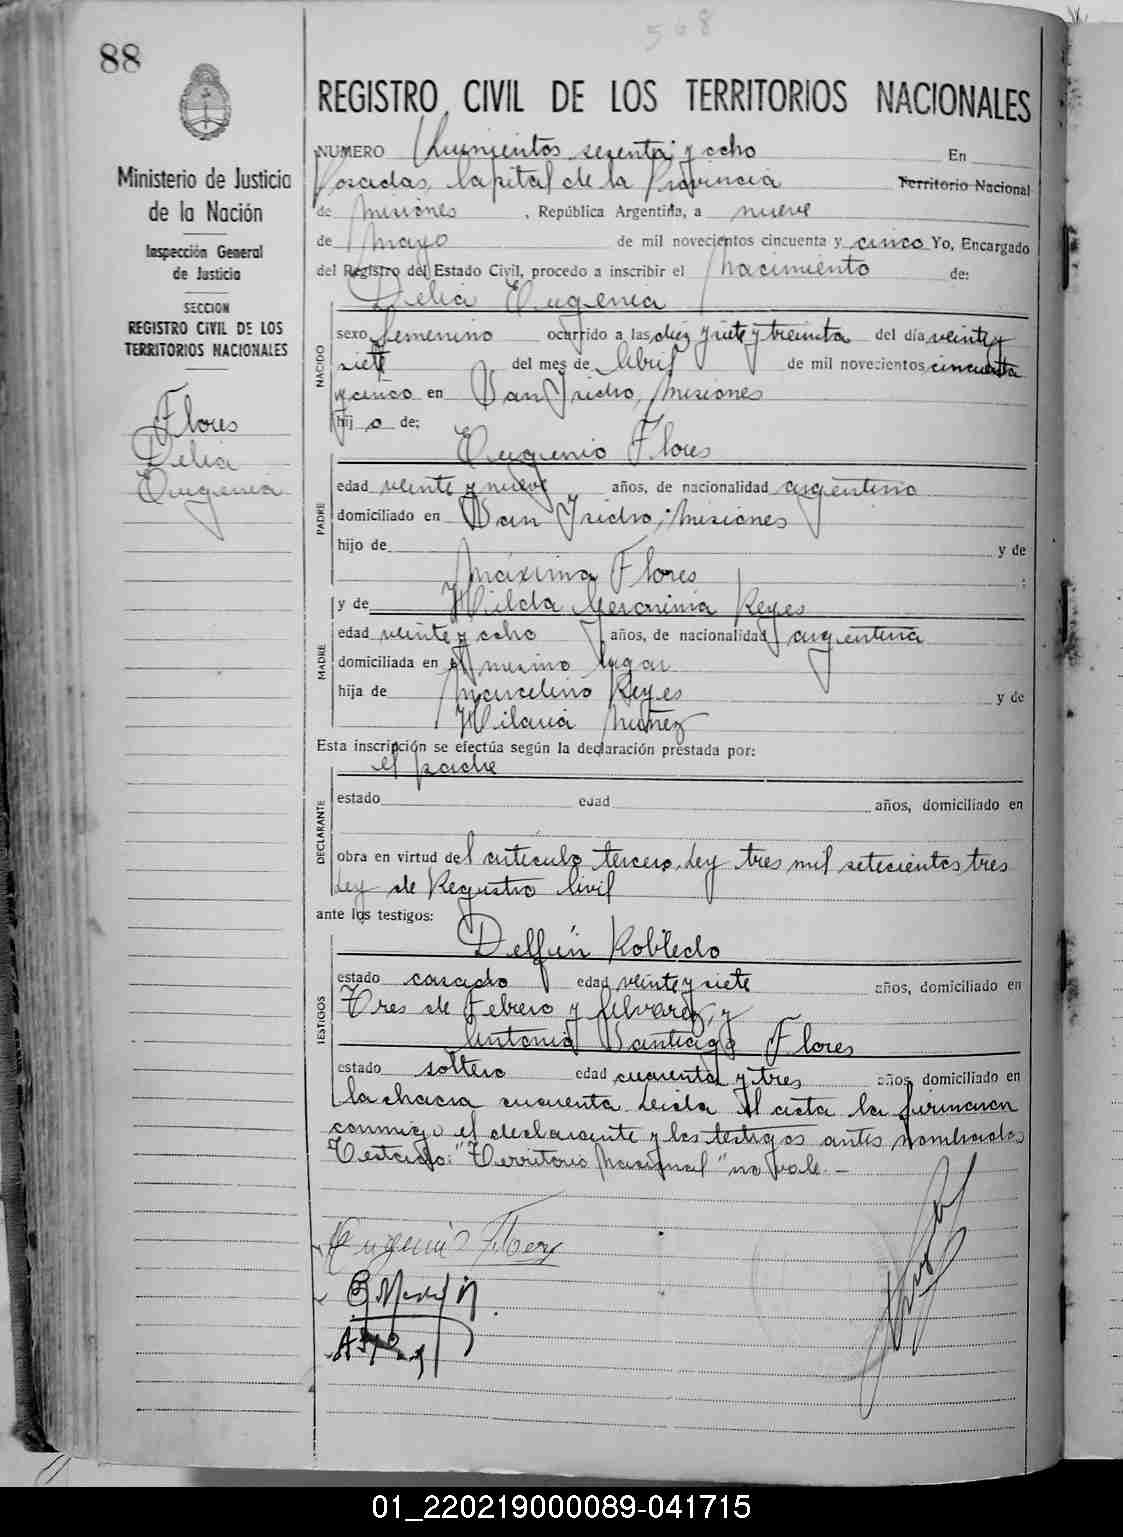 568
88
REGISTRO CIVIL DE LOS TERRITORIOS NACIONALES
Ministerio de Justicia
de la Nación
Inspección General
de Justicia
SECCION
REGISTRO CIVIL DE LOS
TERRITORIOS NACIONALES
Flores
Delia
Eugenia
NUMERO Quinientos sesenta y ocho En
Posadas, Capital de la Provincia Territorio Nacional
de Misiones, República Argentina, a nueve
de Mayo de mil novecientos cincuenta y cinco Yo, Encargado
del Registro del Estado Civil, procedo a inscribir el Nacimiento de:
Delia Eugenia
NACIDO
sexo femenino ocurrido a las diez y siete y treinta del día veinte y
siete del mes de Abril de mil novecientos cincuenta
y cinco en San Isidro, Misiones
hij a de:
Eugenio Flores
PADRE
edad veinte y nueve años, de nacionalidad argentina
domiciliado en San Isidro, Misiones
hijo de y de
Máxima Flores
y de Hilda Geronima Reyes
MADRE
edad veinte y ocho años, de nacionalidad argentina
domiciliada en el mismo lugar
hija de Marcelino Reyes y de
Hilaria Nuñez
Esta inscripción se efectúa según la declaración prestada por:
el padre
DECLARANTE
estado edad años, domiciliado en
obra en virtud del artículo tercero, Ley tres mil setecientos tres
Ley de Registro Civil
ante los testigos:
Delfín Robledo
TESTIGOS
estado casado edad veinte y siete años, domiciliado en
Tres de Febrero y Alvarez, y
Antonio Santiago Flores
estado soltero edad cuarenta y tres años, domiciliado en
la chacra cuarenta Leída el acta la firmaron
conmigo el declarante y los testigos antes nombrados
Testado: "Territorio Nacional" no vale.—
Eugenio Flores
01_220219000089-041715